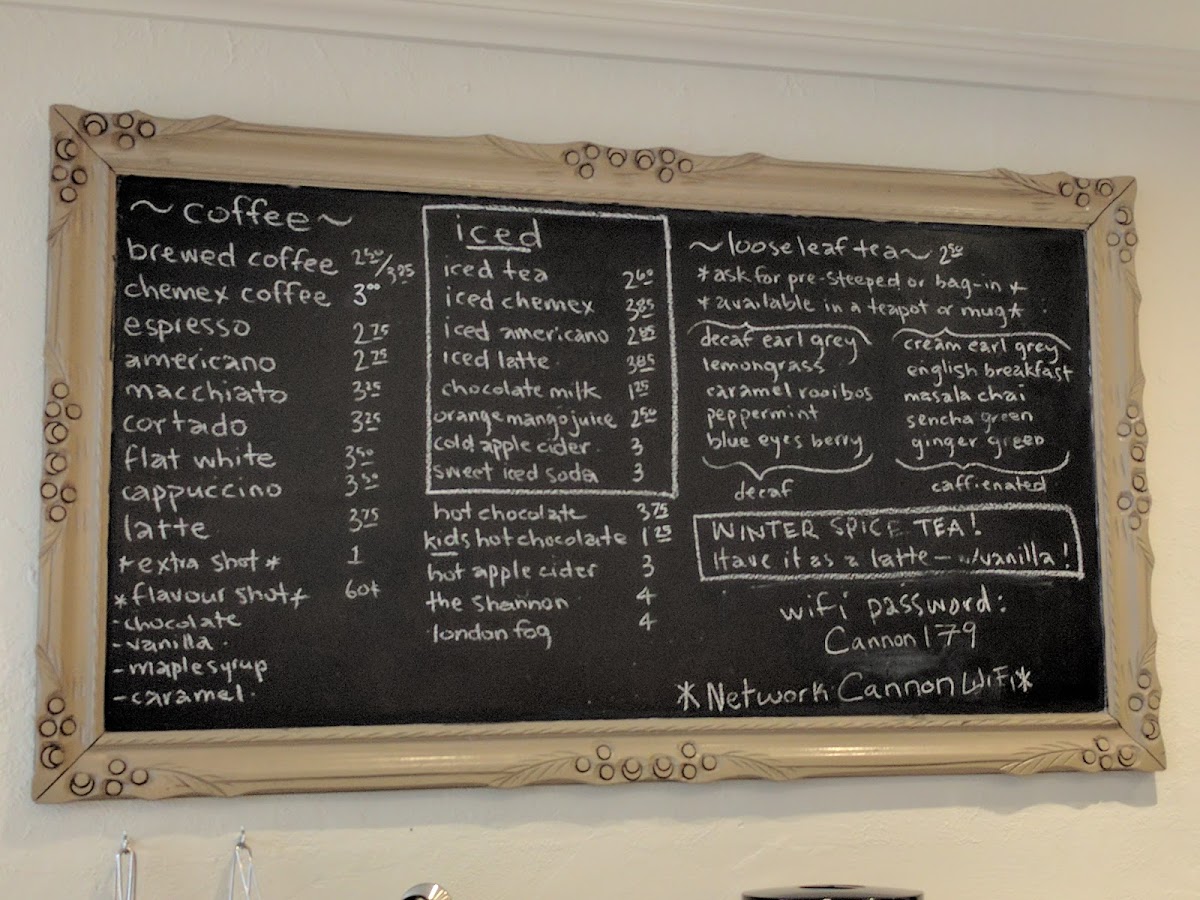 ~coffee~
brewed coffee 2.50/3.25
chemex coffee 3.00
espresso 2.75
americano 2.75
macchiato 3.25
cortado 3.25
flat white 3.50
cappuccino 3.50
latte 3.75
*extra shot* 1
*flavour shot* 60¢
-chocolate
-vanilla
-maple syrup
-caramel
iced
iced tea 2.60
iced chemex 3.85
iced americano 2.85
iced latte 3.85
chocolate milk 1.25
orange mango juice 2.50
cold apple cider 3
sweet iced soda 3
hot chocolate 3.75
kids hot chocolate 1.25
hot apple cider 3
the Shannon 4
london fog 4
~loose leaf tea~ 2.50
*ask for pre-steeped or bag-in*
*available in a teapot or mug*
decaf earl grey
lemongrass
caramel rooibos
peppermint
blue eyes berry
decaf
cream earl grey
english breakfast
masala chai
sencha green
ginger green
caffienated
WINTER SPICE TEA!
Have it as a latte - w/vanilla!
wifi password:
Cannon179
*Network Cannon WiFi*